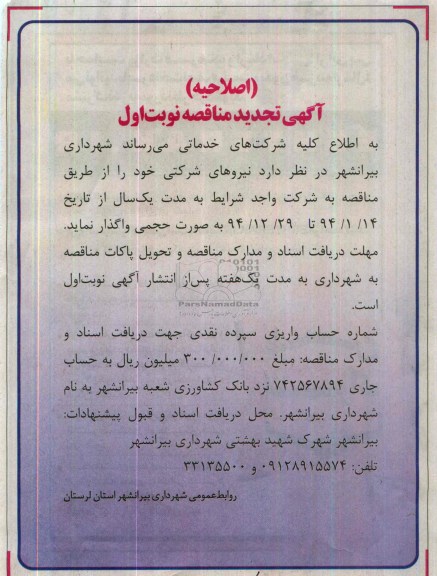 (اصلاحیه)
آگهی تجدید مناقصه نوبت اول
به اطلاع کلیه شرکت‌های خدماتی می‌رساند شهرداری
بیرانشهر در نظر دارد نیروهای شرکتی خود را از طریق
مناقصه به شرکت واجد شرایط به مدت یک‌سال از تاریخ
۱۴/ ۱/ ۹۴ تا ۲۹/ ۱۲/ ۹۴ به صورت حجمی واگذار نماید.
مهلت دریافت اسناد و مدارک مناقصه و تحویل پاکات مناقصه
به شهرداری به مدت یک‌هفته پس‌از انتشار آگهی نوبت‌اول
ParsNamadData
است.
شماره حساب واریزی سپرده نقدی جهت دریافت اسناد و
مدارک مناقصه: مبلغ ۳۰۰/۰۰۰/۰۰۰ میلیون ریال به حساب
جاری ۷۴۲۵۶۷۸۹۴ نزد بانک کشاورزی شعبه بیرانشهر به نام
شهرداری بیرانشهر. محل دریافت اسناد و قبول پیشنهادات:
بیرانشهر شهرک شهید بهشتی شهرداری بیرانشهر
تلفن: ۰۹۱۲۸۹۱۵۵۷۴ و ۳۳۱۳۵۵۰۰
روابط‌عمومی شهرداری بیرانشهر استان لرستان